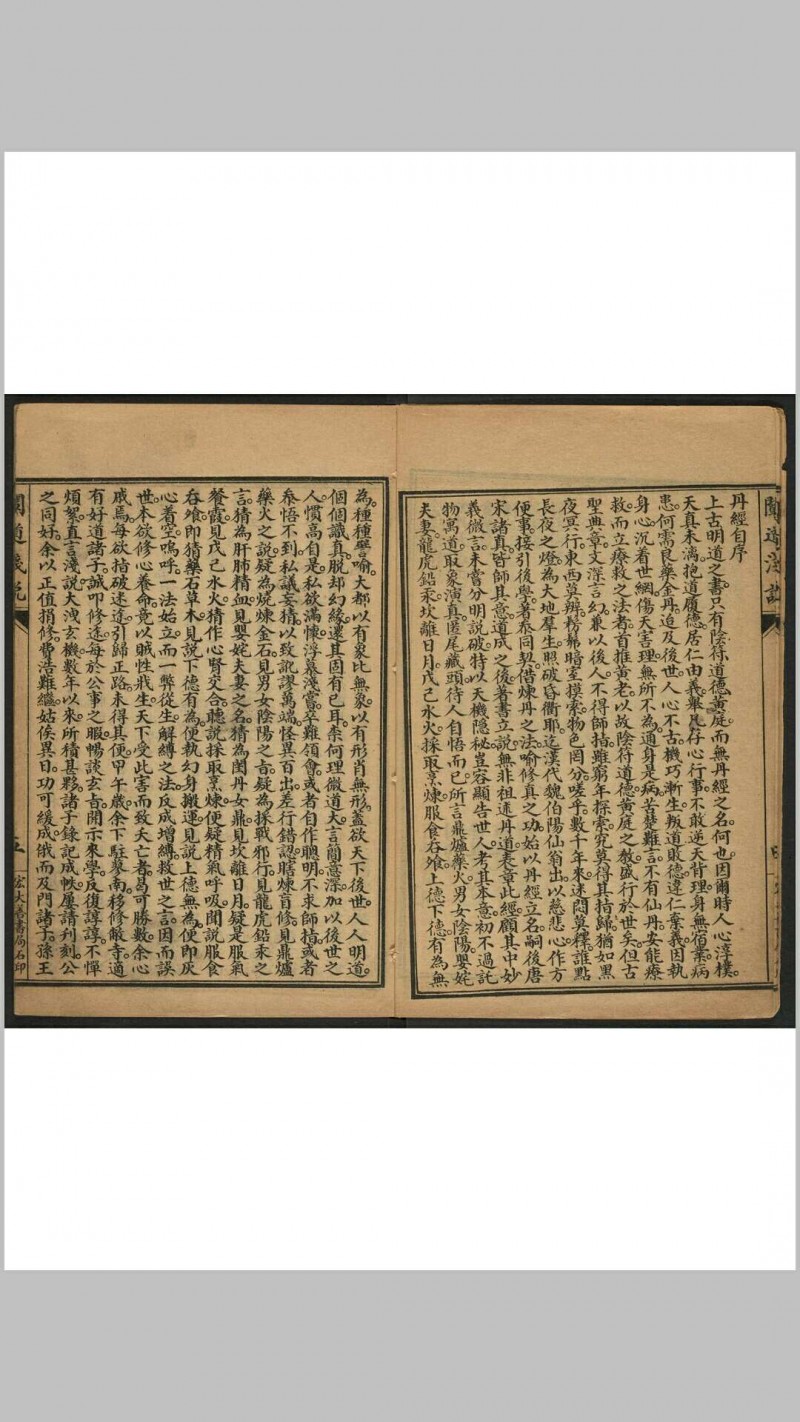 闡道淺說
丹經自序
上古明道之書只有陰符道德黃庭而無丹經之名何也因爾時人心淳樸。
天真未漓抱道履德居仁由義舉民存心行事不敢逆天背理身無宿業病
患何需良藥金丹迨及後世人心不古機巧漸生叛道敗德違仁棄義因執
身心沉着世網傷天害理無所不為通身是病苦楚難言不有仙丹安能療
救而立療救之法者首推黃老以故陰符道德黃庭之教盛行於世矣但古
聖典章文深言幻兼以後人不得師指雖窮年探索究莫得其指歸猶如黑
夜冥行東西莫辨榜茀暗室摸索物色罔分嗟乎數千年來迷悶莫釋誰點
長夜之燈為大地羣生照破昏衢耶迄漢代魏伯陽仙翁出以慈悲心作方
便事接引後學著叅同契借煉丹之法喻修真之功始以丹經立名嗣後唐
宋諸真皆師其意道成之後著書立說無非祖述丹道表章此經顧其中妙
義微言未嘗分明說破特以天機隱秘豈容顯告世人考其本意初不過託
物寓道取象演真匿尾藏頭待人自悟而已所言鼎爐藥火男女陰陽嬰姹
夫妻龍虎鉛汞坎離日月戊己水火採取烹煉服食吞飧上德下德有為無
為種種譬喻大都以有象比無象以有形肖無形蓋欲天下後世人人明道。
個個識真脫却幻緣還其固有已耳柰何理微道大言簡意深加以後世之
人慣高自是私欲滿懷浮慕淺嘗卒難領會或者自作聰明不求師指或者
叅悟不到私議妄猜以致訛謬萬端怪異百出差行錯認瞎煉盲修見鼎爐
藥火之說疑為燒煉金石見男女陰陽之旨疑為採戰邪行見龍虎鉛汞之
言猜為肝肺精血見嬰姹夫妻之名猜為閨丹女鼎見坎離日月疑是服氣
餐霞見戊己水火猜作心腎交合聽說採取烹煉便疑精氣呼吸聞說服食
吞飧即猜藥石草木見說下德有為便執幻身搬運見說上德無為便即灰
心着空嗚呼一法始立而一弊從生解縛之法反成增縛救世之言因而誤
世本欲修心養命竟以賊性戕生天下受此害而致夭亡者曷可勝數余心
戚焉每欲指破迷途引歸正路未得其便甲午歲余下駐蓼南移修敝寺適
有好道諸子誠叩修途每於公事之暇暢談玄旨開示來學反復諄諄不憚
煩絮直言淺說大洩玄機數年以來所積甚夥諸子錄記成帙屢請刊刻公
之同好余以正值捐修費浩難繼姑俟異日功可緩成俄而及門諸子孫王
闡道淺說
宏大善書局石印